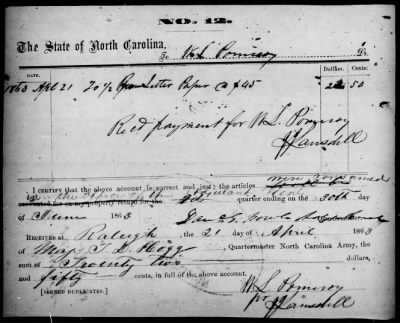 No. 12.
The State of North Carolina,
To W. L. Pomeroy
DATE. Dollars. Cents.
1863 Apl 21 To 1/2 Ream Letter Paper @ $45 22 50
Recd payment for W. L. Pomeroy
J J Lansdell
I CERTIFY that the above account is correct and just; the articles
in the Office of
on my property return for the 2d quarter ending on the 30th day
of June 1863
RECEIVED AT Raleigh the 21 day of April 1863
of Maj. T. D. Hogg Quartermaster North Carolina Army, the
sum of Twenty two dollars,
and fifty cents, in full of the above account.
[SIGNED DUPLICATES.]
W. L. Pomeroy
pr J J Lansdell